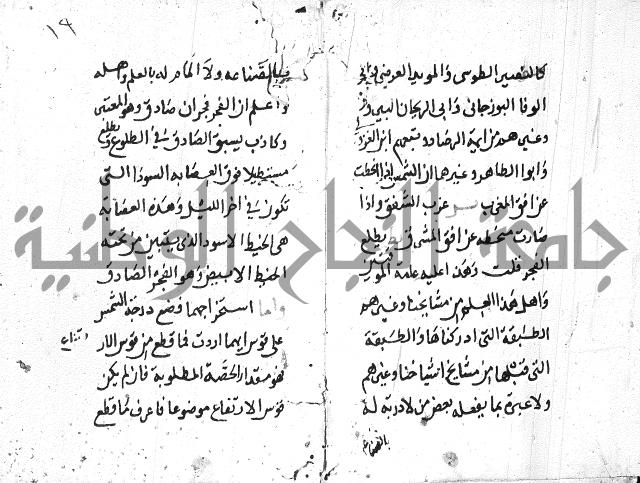 كالنصير الطوسي والمويد العرضي وابي
الوفا البوزجاني وابي الريحان البيروني
وغيرهم من ايمة الرصاد ومتبعهم
وابوا الطاهر وغيرها ان الشمس اذا انحطت
عن افق المغرب غرب الشفق واذا
صارت منحطه عن افق المشرق يطلع
الفجر قلت وهذا عليه عامة
واهل هذا العلم من مشايخنا وغيرهم
الطبقة التي ادركناها والطبقة
التي قبلها من مشايخ اشياخنا وغيرهم
ولا عبرة بما يفعله بعض من لا دربة له
بالصناعه
١٩
بالصناعه ولا المام له بالعلم واهله
واعلم ان الفجر فجران صادق وهو المعتبر
وكاذب يسبق الصادق في الطلوع ويطلع
مستطيلا فوق العصابة السودا التي
تكون في اخر الليل وهذه العصابة
هي الخيط الاسود الذي يتبين من تحته
الخيط الابيض وهو الفجر الصادق
واما استخراجهما فضع درجة الشمس
على قوس ايهما اردت فما قطع من قوس الار
تفاع
فهو مقدار الحصة المطلوبة فان لم يكن
قوس الارتفاع موضوعا فاعرف ما قطع
جامعة النجاح الوطنية